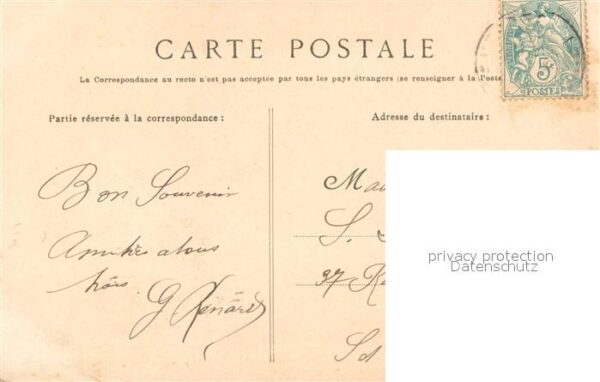 CARTE POSTALE
La Correspondance au recto n'est pas acceptée par tous les pays étrangers (se renseigner à la Poste
5c
POSTES
Partie réservée à la correspondance :
Adresse du destinataire :
Bon Souvenir
Amitiés a tous
G Renard
S.
37
privacy protection
Datenschutz